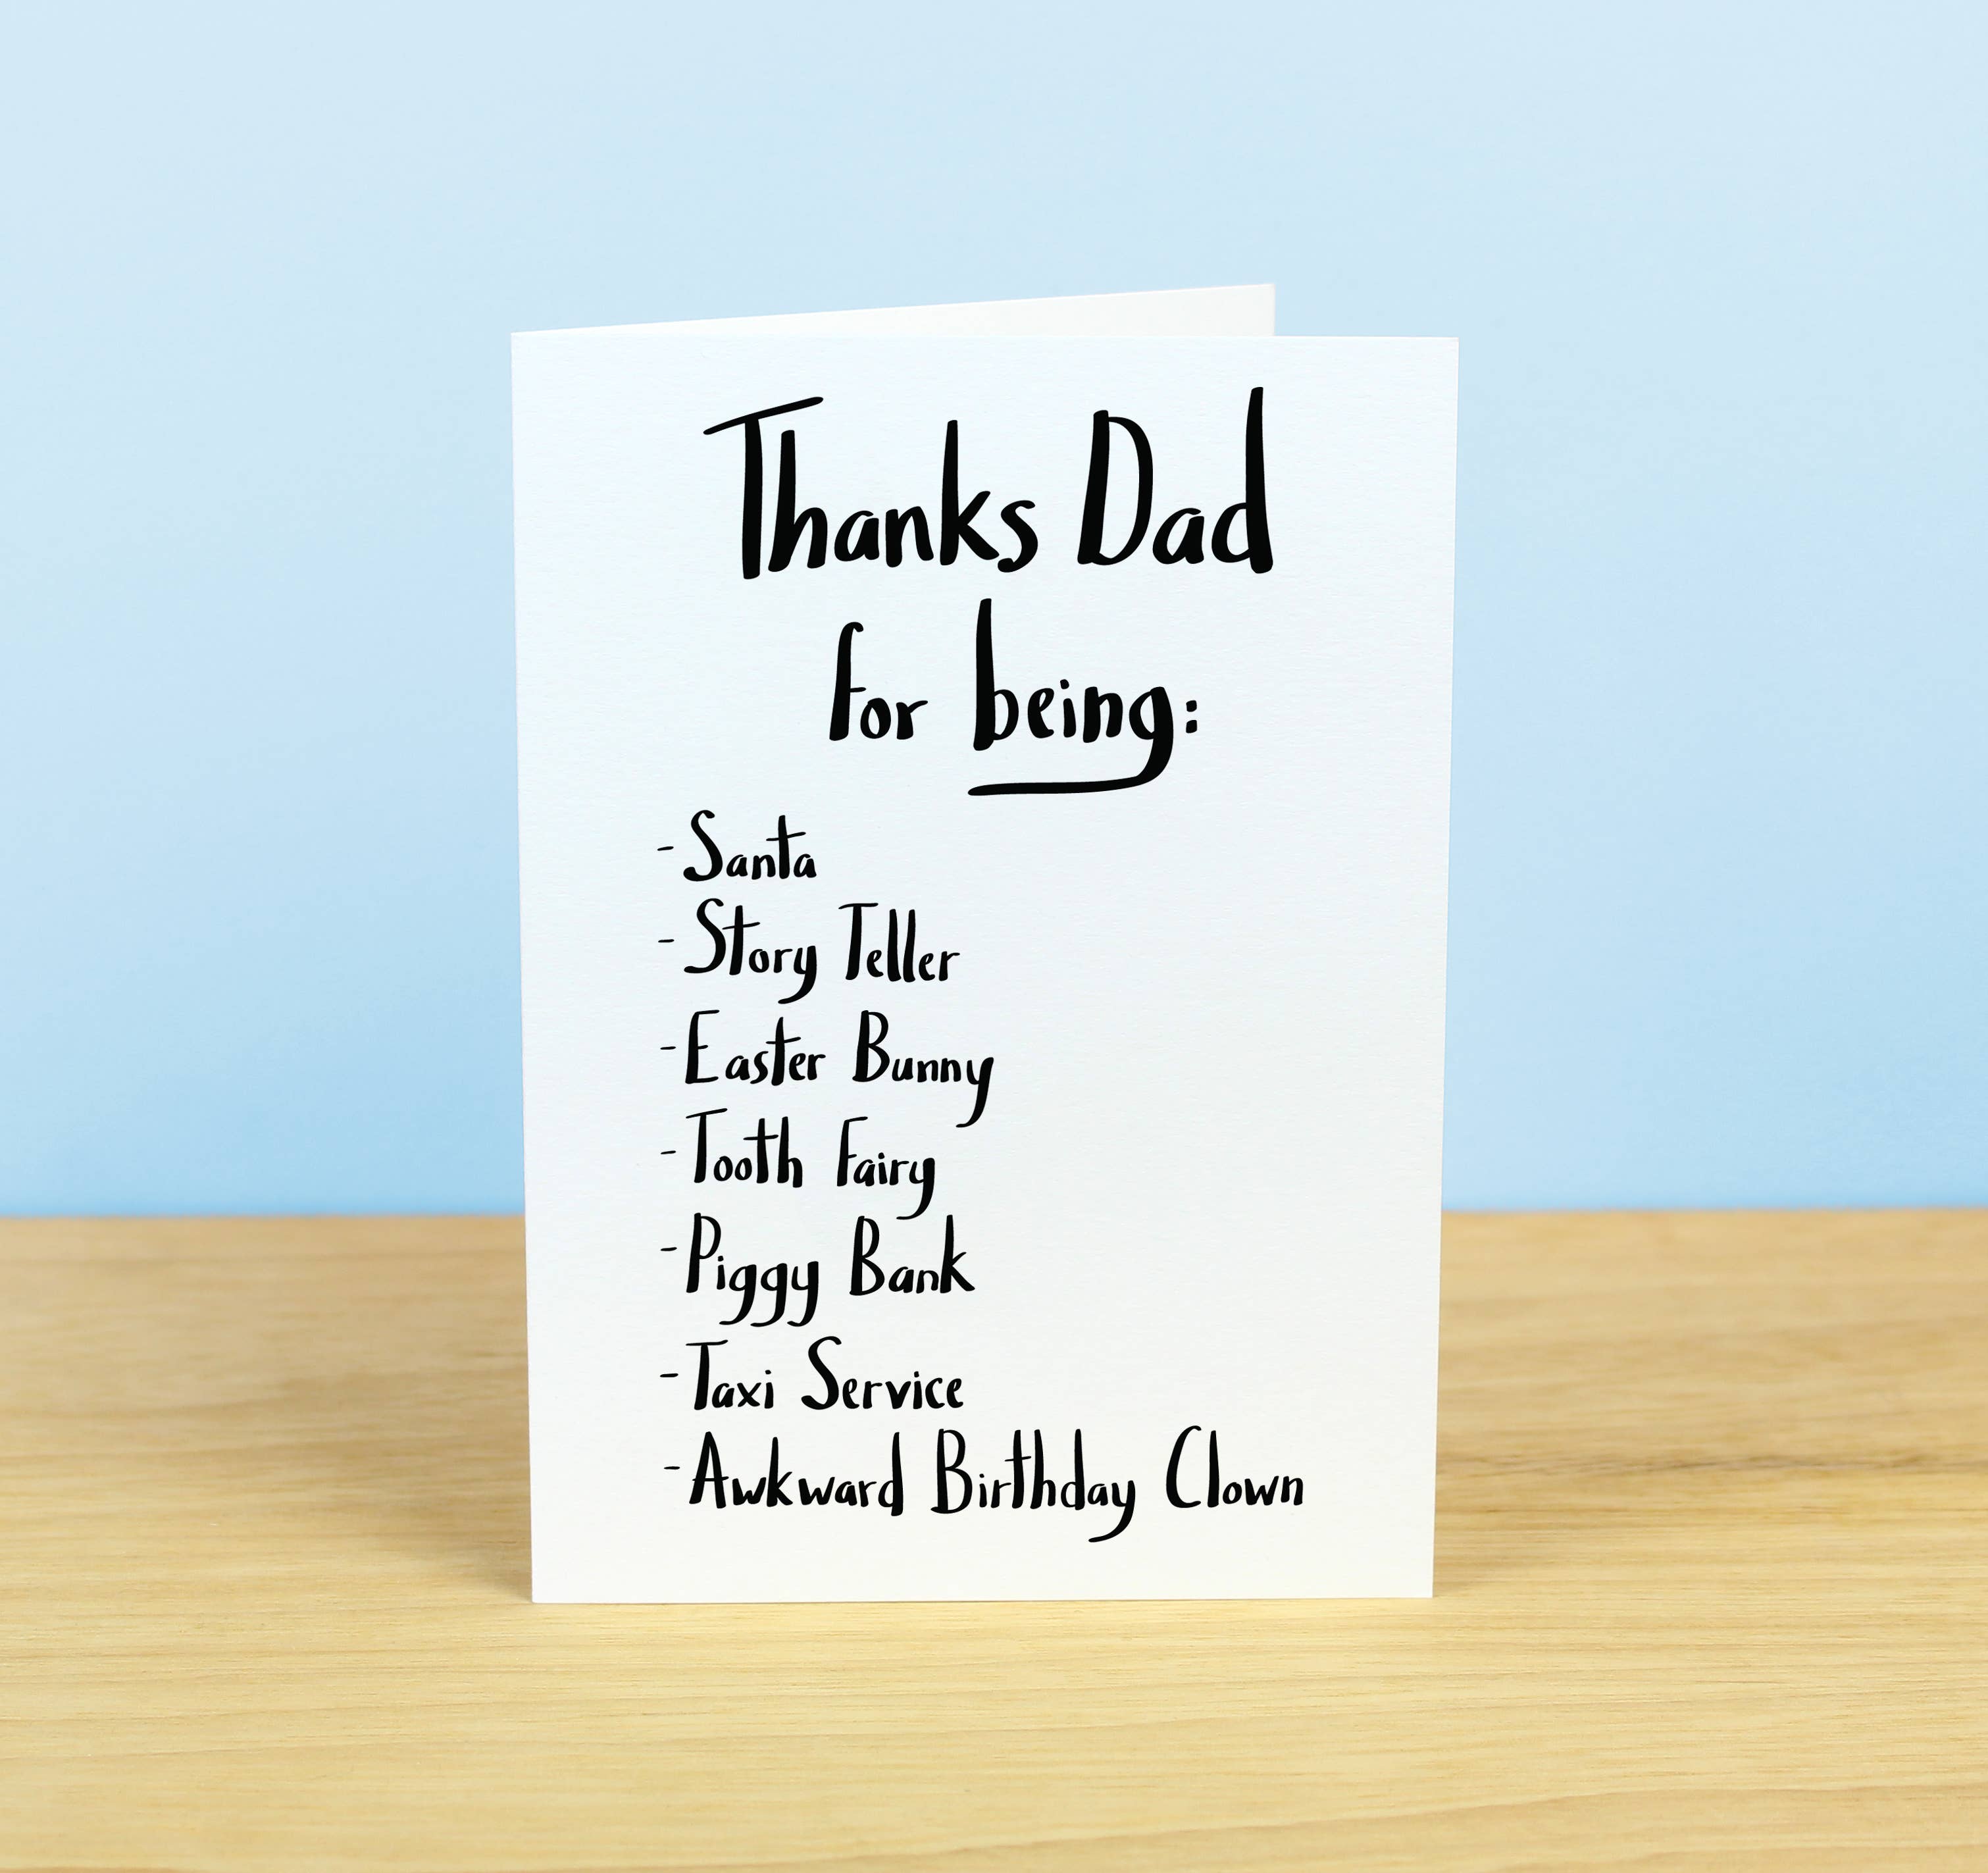 Thanks Dad
for being:
- Santa
- Story Teller
- Easter Bunny
- Tooth Fairy
- Piggy Bank
- Taxi Service
- Awkward Birthday Clown